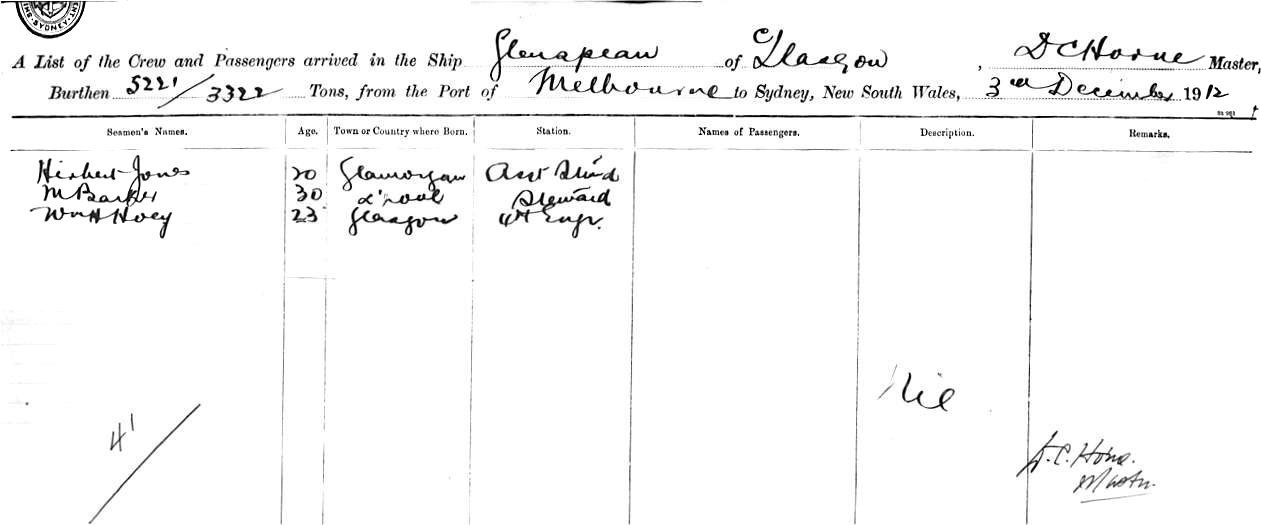 SYDNEY
A List of the Crew and Passengers arrived in the Ship Glenapean of Glasgow, D C Horne Master,
Burthen 5221/3322 Tons, from the Port of Melbourne to Sydney, New South Wales, 3rd December 1912
Seamen's Names. Age. Town or Country where Born. Station. Names of Passengers. Description. Remarks.
Herbert Jones 20 Glamorgan Asst Stwd
M Barker 30 L'pool Steward
Wm H Hoey 23 Glasgow 4th Engr.
Nil
41
D. C. Horne.
Master.